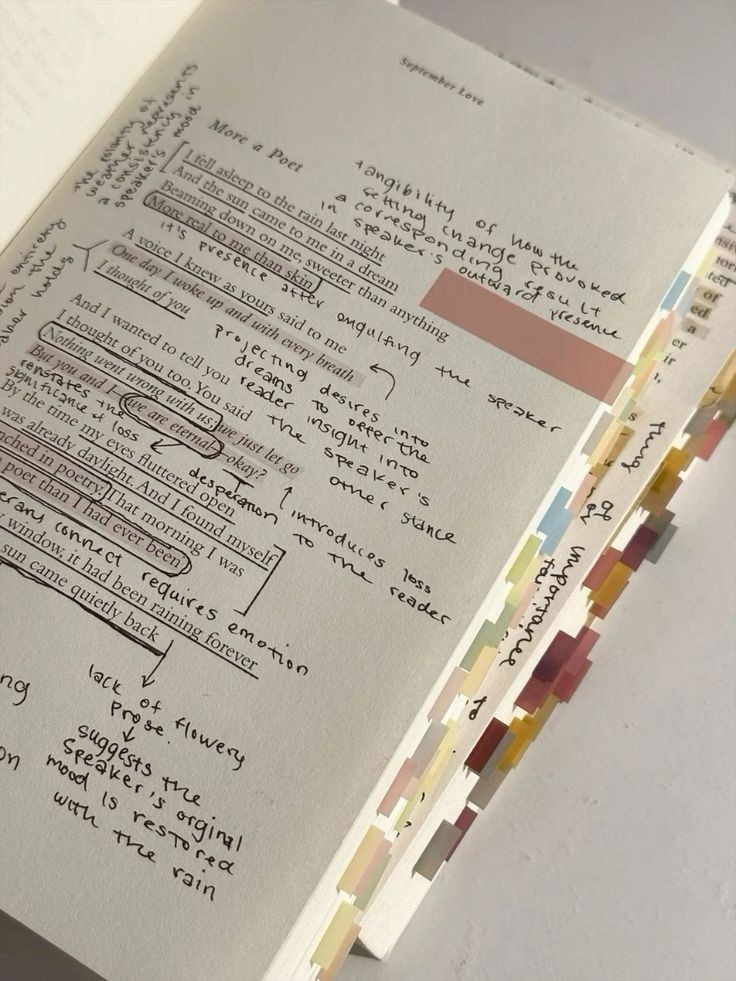 September Love
More a Poet
I fell asleep to the rain last night
And the sun came to me in a dream
Beaming down on me, sweeter than anything
More real to me than skin
A voice I knew as yours said to me
One day I woke up and with every breath
I thought of you
And I wanted to tell you
I thought of you too. You said
Nothing went wrong with us, we just let go
But you and I, we are eternal, okay?
By the time my eyes fluttered open
was already daylight. And I found myself
nched in poetry. That morning I was
poet than I had ever been
window, it had been raining forever
sun came quietly back
the polarity of
weather represents
a consistency in
speaker's mood in
tangibility of how the
setting change provoked
a corresponding result
in speaker's outward presence
it's presence after engulfing the speaker
projecting desires into
dreams to offer the
reader insight into
the speaker's
other stance
reinstates the
significance of loss
desperation
introduces loss
to the reader
connect requires emotion
lack of flowery
prose.
suggests the
speaker's orginal
mood is restored
with the rain
holds
ng
on
thing
of importance
to